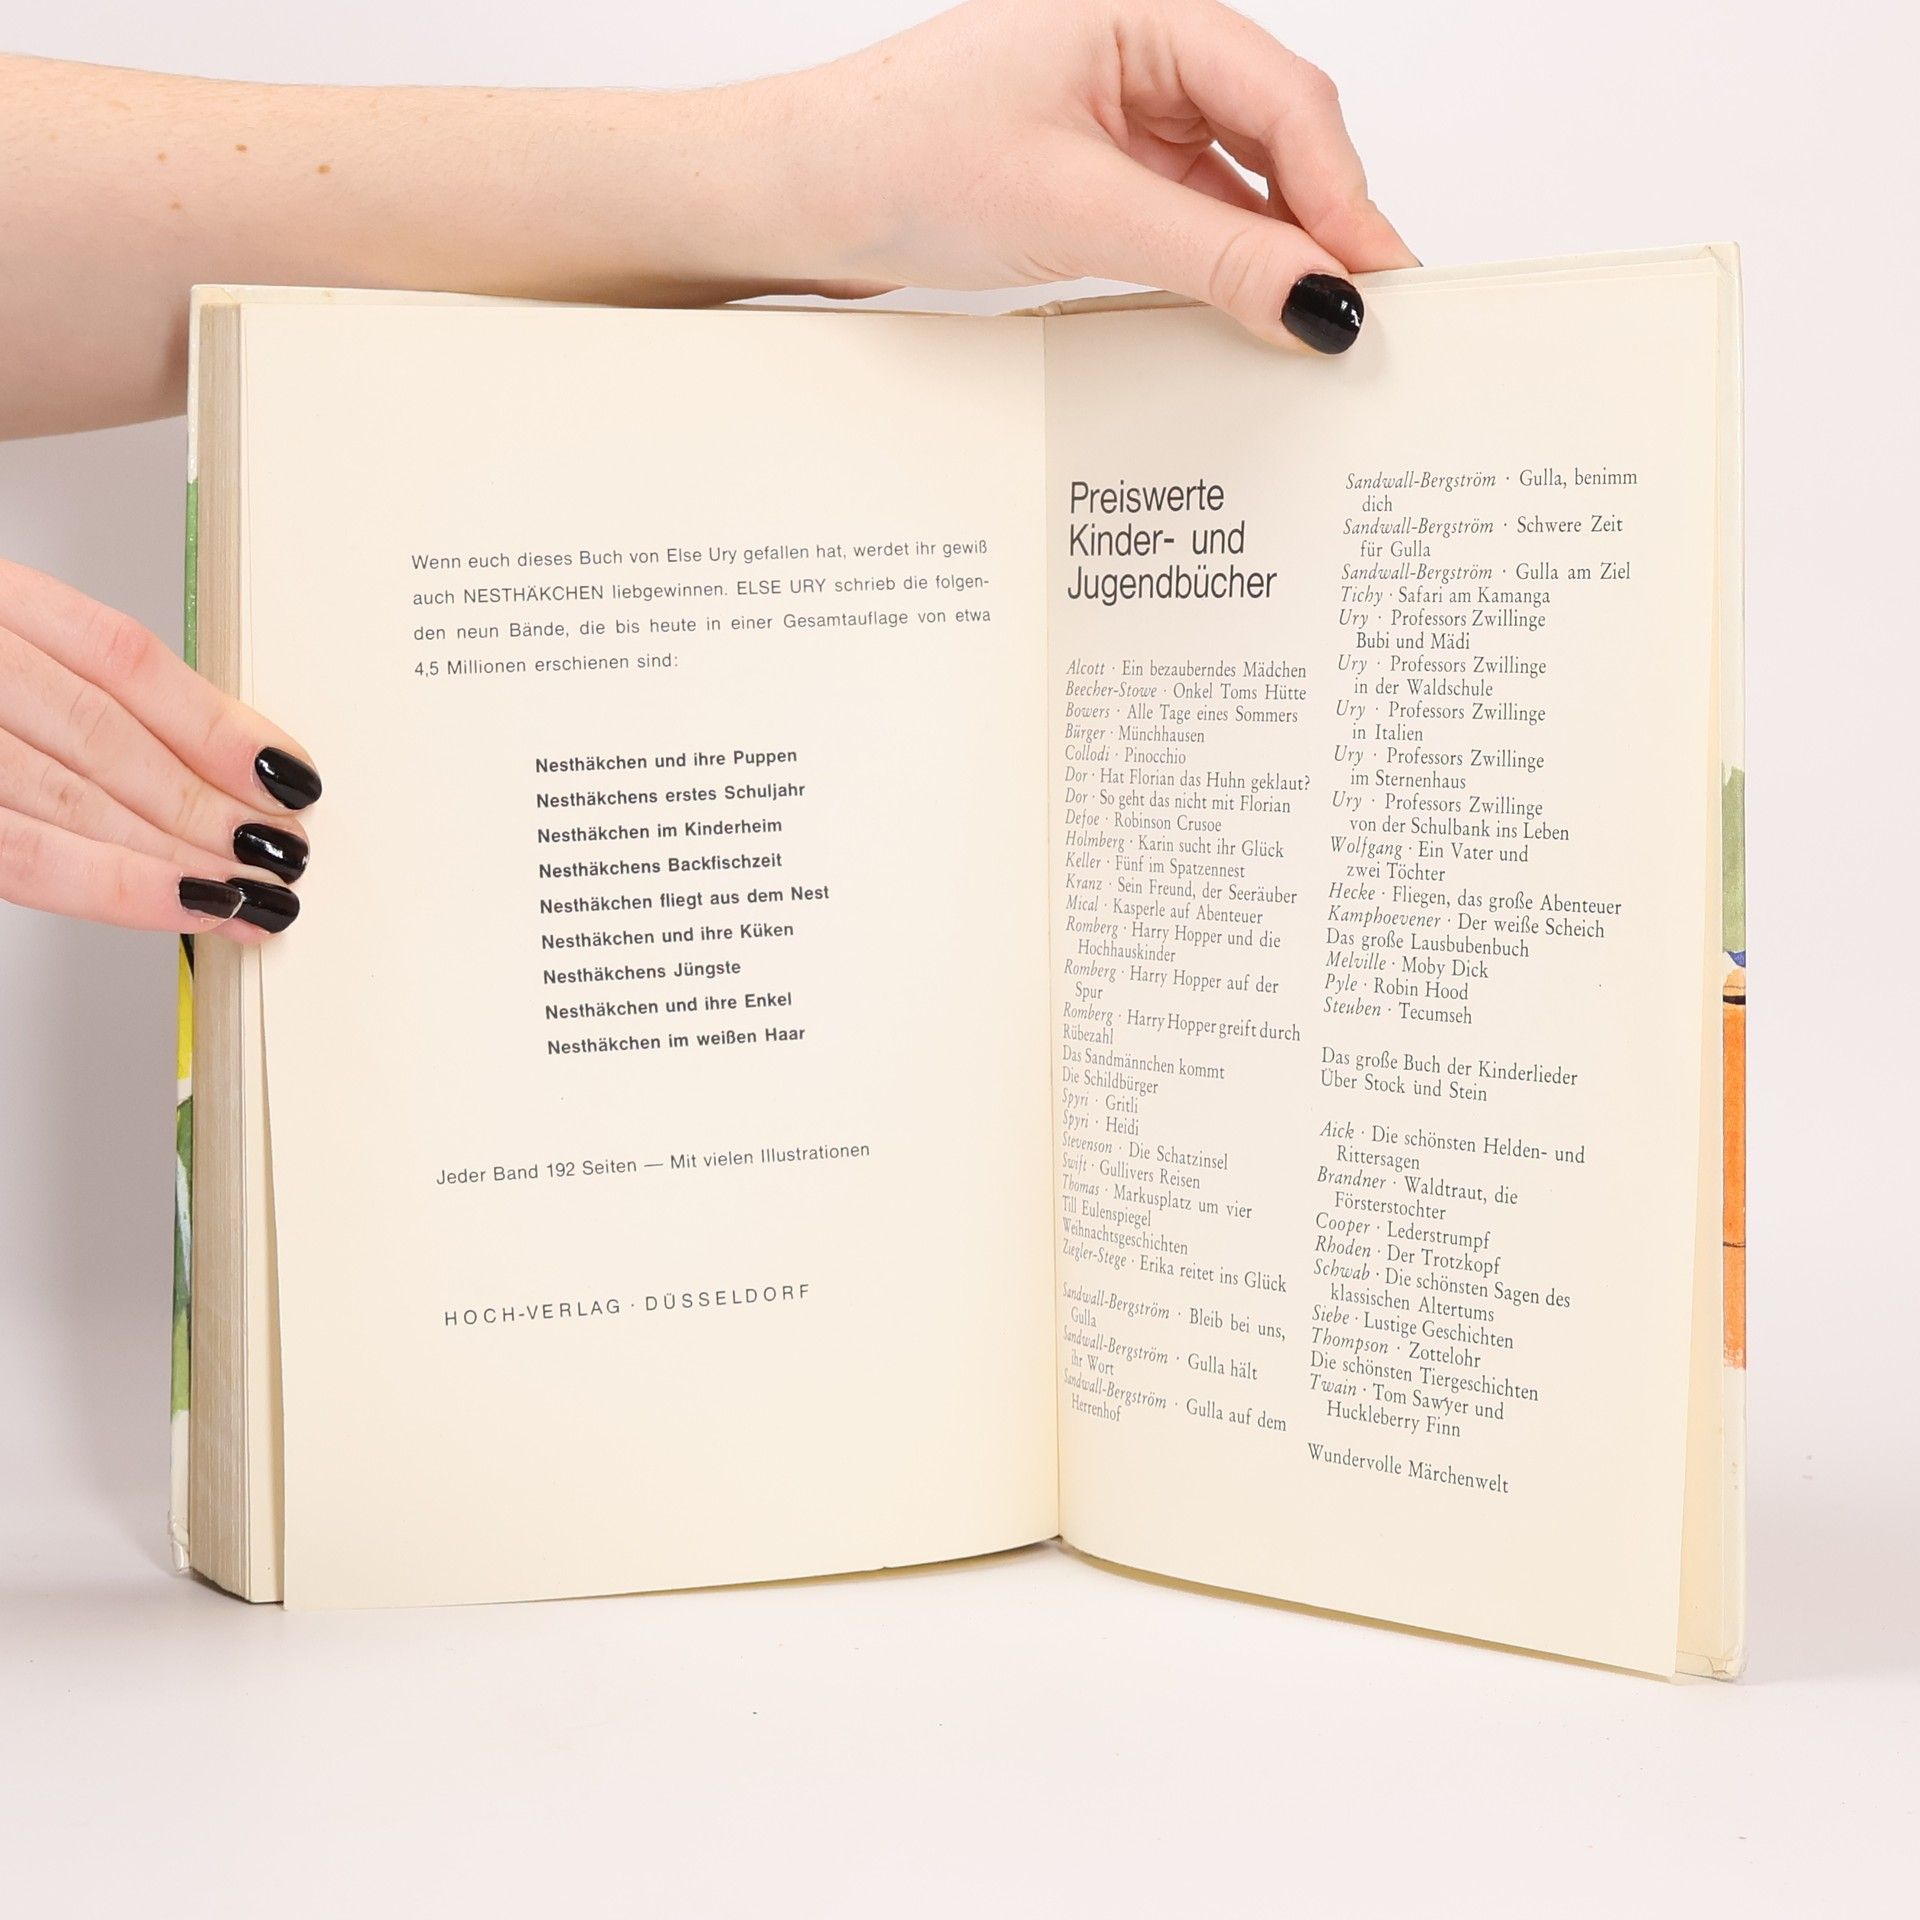 Wenn euch dieses Buch von Else Ury gefallen hat, werdet ihr gewiß
auch NESTHÄKCHEN liebgewinnen. ELSE URY schrieb die folgen-
den neun Bände, die bis heute in einer Gesamtauflage von etwa
4,5 Millionen erschienen sind:
Nesthäkchen und ihre Puppen
Nesthäkchens erstes Schuljahr
Nesthäkchen im Kinderheim
Nesthäkchens Backfischzeit
Nesthäkchen fliegt aus dem Nest
Nesthäkchen und ihre Küken
Nesthäkchens Jüngste
Nesthäkchen und ihre Enkel
Nesthäkchen im weißen Haar
Jeder Band 192 Seiten — Mit vielen Illustrationen
HOCH-VERLAG · DÜSSELDORF
Preiswerte
Kinder- und
Jugendbücher
Alcott · Ein bezauberndes Mädchen
Beecher-Stowe · Onkel Toms Hütte
Bowers · Alle Tage eines Sommers
Bürger · Münchhausen
Collodi · Pinocchio
Dor · Hat Florian das Huhn geklaut?
Dor · So geht das nicht mit Florian
Defoe · Robinson Crusoe
Holmberg · Karin sucht ihr Glück
Keller · Fünf im Spatzennest
Kranz · Sein Freund, der Seeräuber
Mical · Kasperle auf Abenteuer
Romberg · Harry Hopper und die
Hochhauskinder
Romberg · Harry Hopper auf der
Spur
Romberg · Harry Hopper greift durch
Rübezahl
Das Sandmännchen kommt
Die Schildbürger
Spyri · Gritli
Spyri · Heidi
Stevenson · Die Schatzinsel
Swift · Gullivers Reisen
Thomas · Markusplatz um vier
Till Eulenspiegel
Weihnachtsgeschichten
Ziegler-Stege · Erika reitet ins Glück
Sandwall-Bergström · Bleib bei uns,
Gulla
Sandwall-Bergström · Gulla hält
ihr Wort
Sandwall-Bergström · Gulla auf dem
Herrenhof
Sandwall-Bergström · Gulla, benimm
dich
Sandwall-Bergström · Schwere Zeit
für Gulla
Sandwall-Bergström · Gulla am Ziel
Tichy · Safari am Kamanga
Ury · Professors Zwillinge
Bubi und Mädi
Ury · Professors Zwillinge
in der Waldschule
Ury · Professors Zwillinge
in Italien
Ury · Professors Zwillinge
im Sternenhaus
Ury · Professors Zwillinge
von der Schulbank ins Leben
Wolfgang · Ein Vater und
zwei Töchter
Hecke · Fliegen, das große Abenteuer
Kamphoevener · Der weiße Scheich
Das große Lausbubenbuch
Melville · Moby Dick
Pyle · Robin Hood
Steuben · Tecumseh
Das große Buch der Kinderlieder
Über Stock und Stein
Aick · Die schönsten Helden- und
Rittersagen
Brandner · Waldtraut, die
Försterstochter
Cooper · Lederstrumpf
Rhoden · Der Trotzkopf
Schwab · Die schönsten Sagen des
klassischen Altertums
Siebe · Lustige Geschichten
Thompson · Zottelohr
Die schönsten Tiergeschichten
Twain · Tom Sawyer und
Huckleberry Finn
Wundervolle Märchenwelt